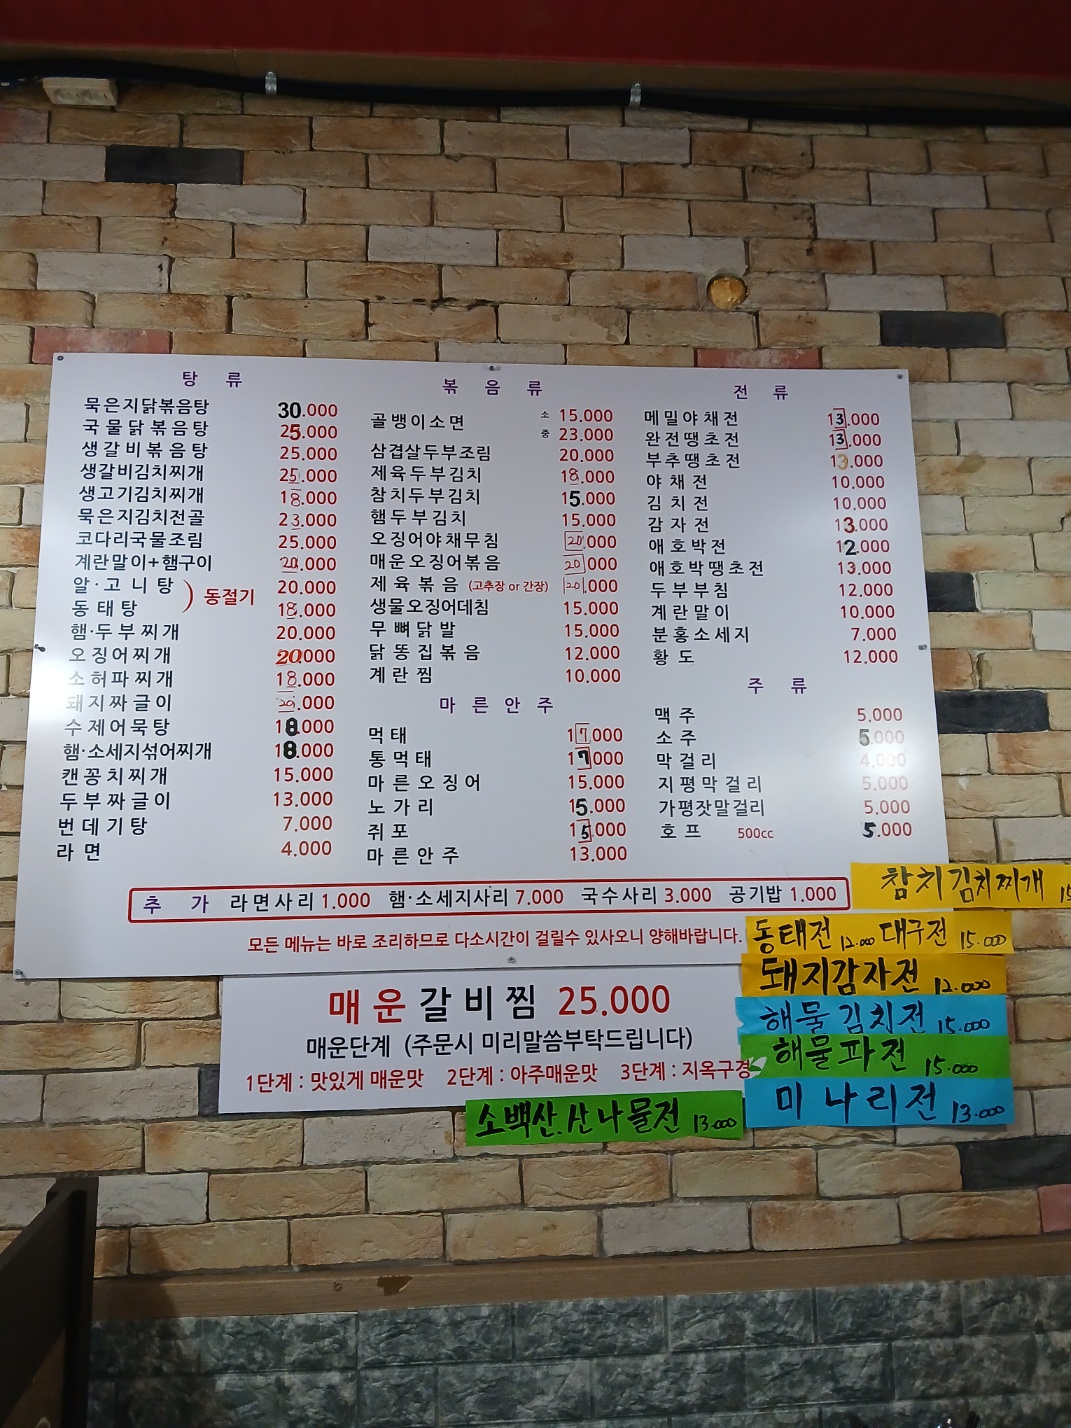 탕 류
묵은지닭볶음탕 30.000
국물닭볶음탕 25.000
생갈비볶음탕 25.000
생갈비김치찌개 25.000
생고기김치찌개 18.000
묵은지김치전골 23.000
코다리국물조림 25.000
계란말이+햄구이 20.000
알·고니탕 20.000
동태탕 18.000
동절기
햄·두부찌개 20.000
오징어찌개 20.000
소허파찌개 18.000
돼지짜글이 20.000
수제어묵탕 18.000
햄·소세지섞어찌개 18.000
캔꽁치찌개 15.000
두부짜글이 13.000
번데기탕 7.000
라면 4.000
볶 음 류
골뱅이소면 소 15.000
중 23.000
삼겹살두부조림 20.000
제육두부김치 18.000
참치두부김치 15.000
햄두부김치 15.000
오징어야채무침 20.000
매운오징어볶음 20.000
제육볶음 (고추장 or 간장) 20.000
생물오징어데침 15.000
무뼈닭발 15.000
닭똥집볶음 12.000
계란찜 10.000
마 른 안 주
먹태 17.000
통먹태 17.000
마른오징어 15.000
노가리 15.000
쥐포 15.000
마른안주 13.000
전 류
메밀야채전 13.000
완전땡초전 13.000
부추땡초전 13.000
야채전 10.000
김치전 10.000
감자전 13.000
애호박전 12.000
애호박땡초전 13.000
두부부침 12.000
계란말이 10.000
분홍소세지 7.000
황도 12.000
주 류
맥주 5.000
소주 5.000
막걸리 4.000
지평막걸리 5.000
가평잣말걸리 5.000
호프 500cc 5.000
추 가 라면사리 1.000 햄·소세지사리 7.000 국수사리 3.000 공기밥 1.000
모든 메뉴는 바로 조리하므로 다소시간이 걸릴수 있사오니 양해바랍니다.
참치김치찌개
동태전 12.000 대구전 15.000
돼지감자전 12.000
해물김치전 15.000
해물파전 15.000
미나리전 13.000
매운갈비찜 25.000
매운단계 (주문시 미리말씀부탁드립니다)
1단계 : 맛있게 매운맛 2단계 : 아주매운맛 3단계 : 지옥구경
소백산.산나물전 13.000